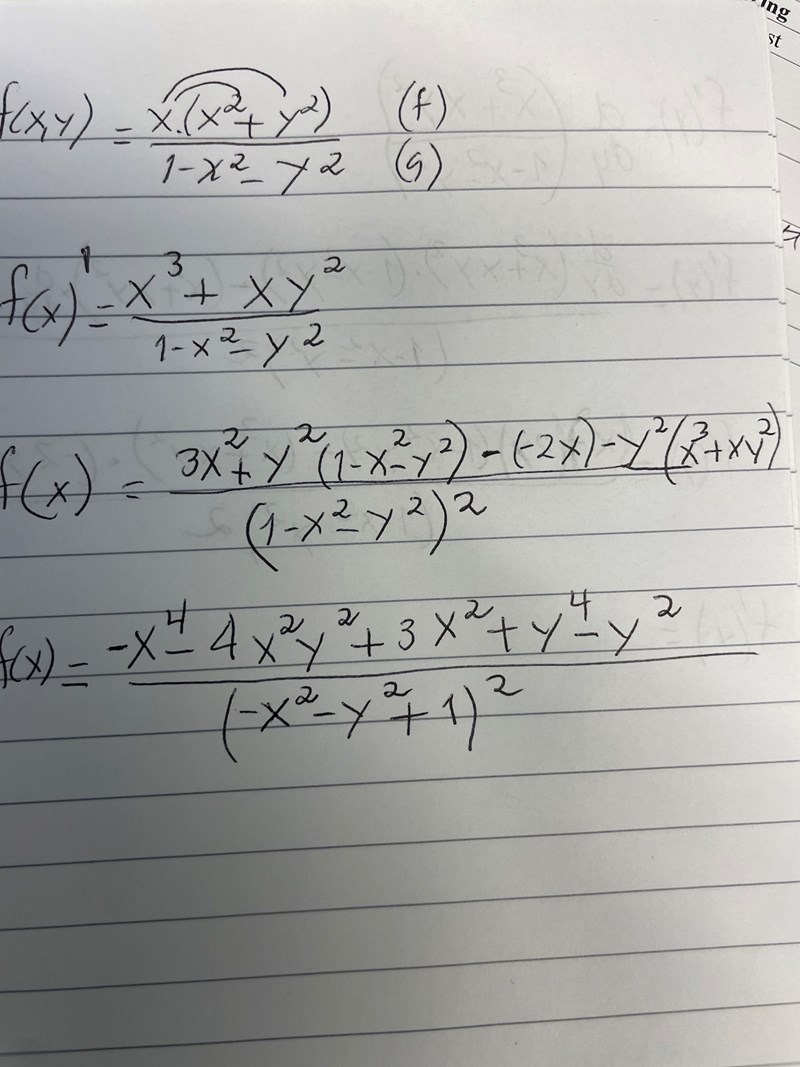 ing
st
f(x,y) = x.(x²+ y²) / 1-x²- y² (f) (g)
f(x)' = x³+ xy² / 1-x²- y²
f(x) = 3x²+ y²(1-x²-y²) - (-2x) - y²(x³+xy²) / (1-x²- y²)²
f(x) = -x⁴- 4x²y²+ 3x²+ y⁴- y² / (-x²-y²+ 1)²